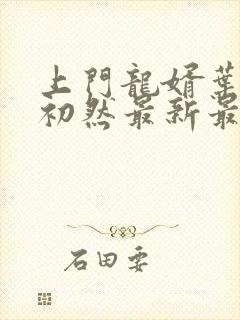 上門龍婿葉
初然最新最
石田要